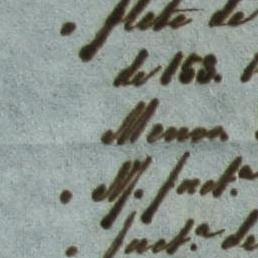 flete de
de 153.
Menos
M. fact.ª
fact.ª de